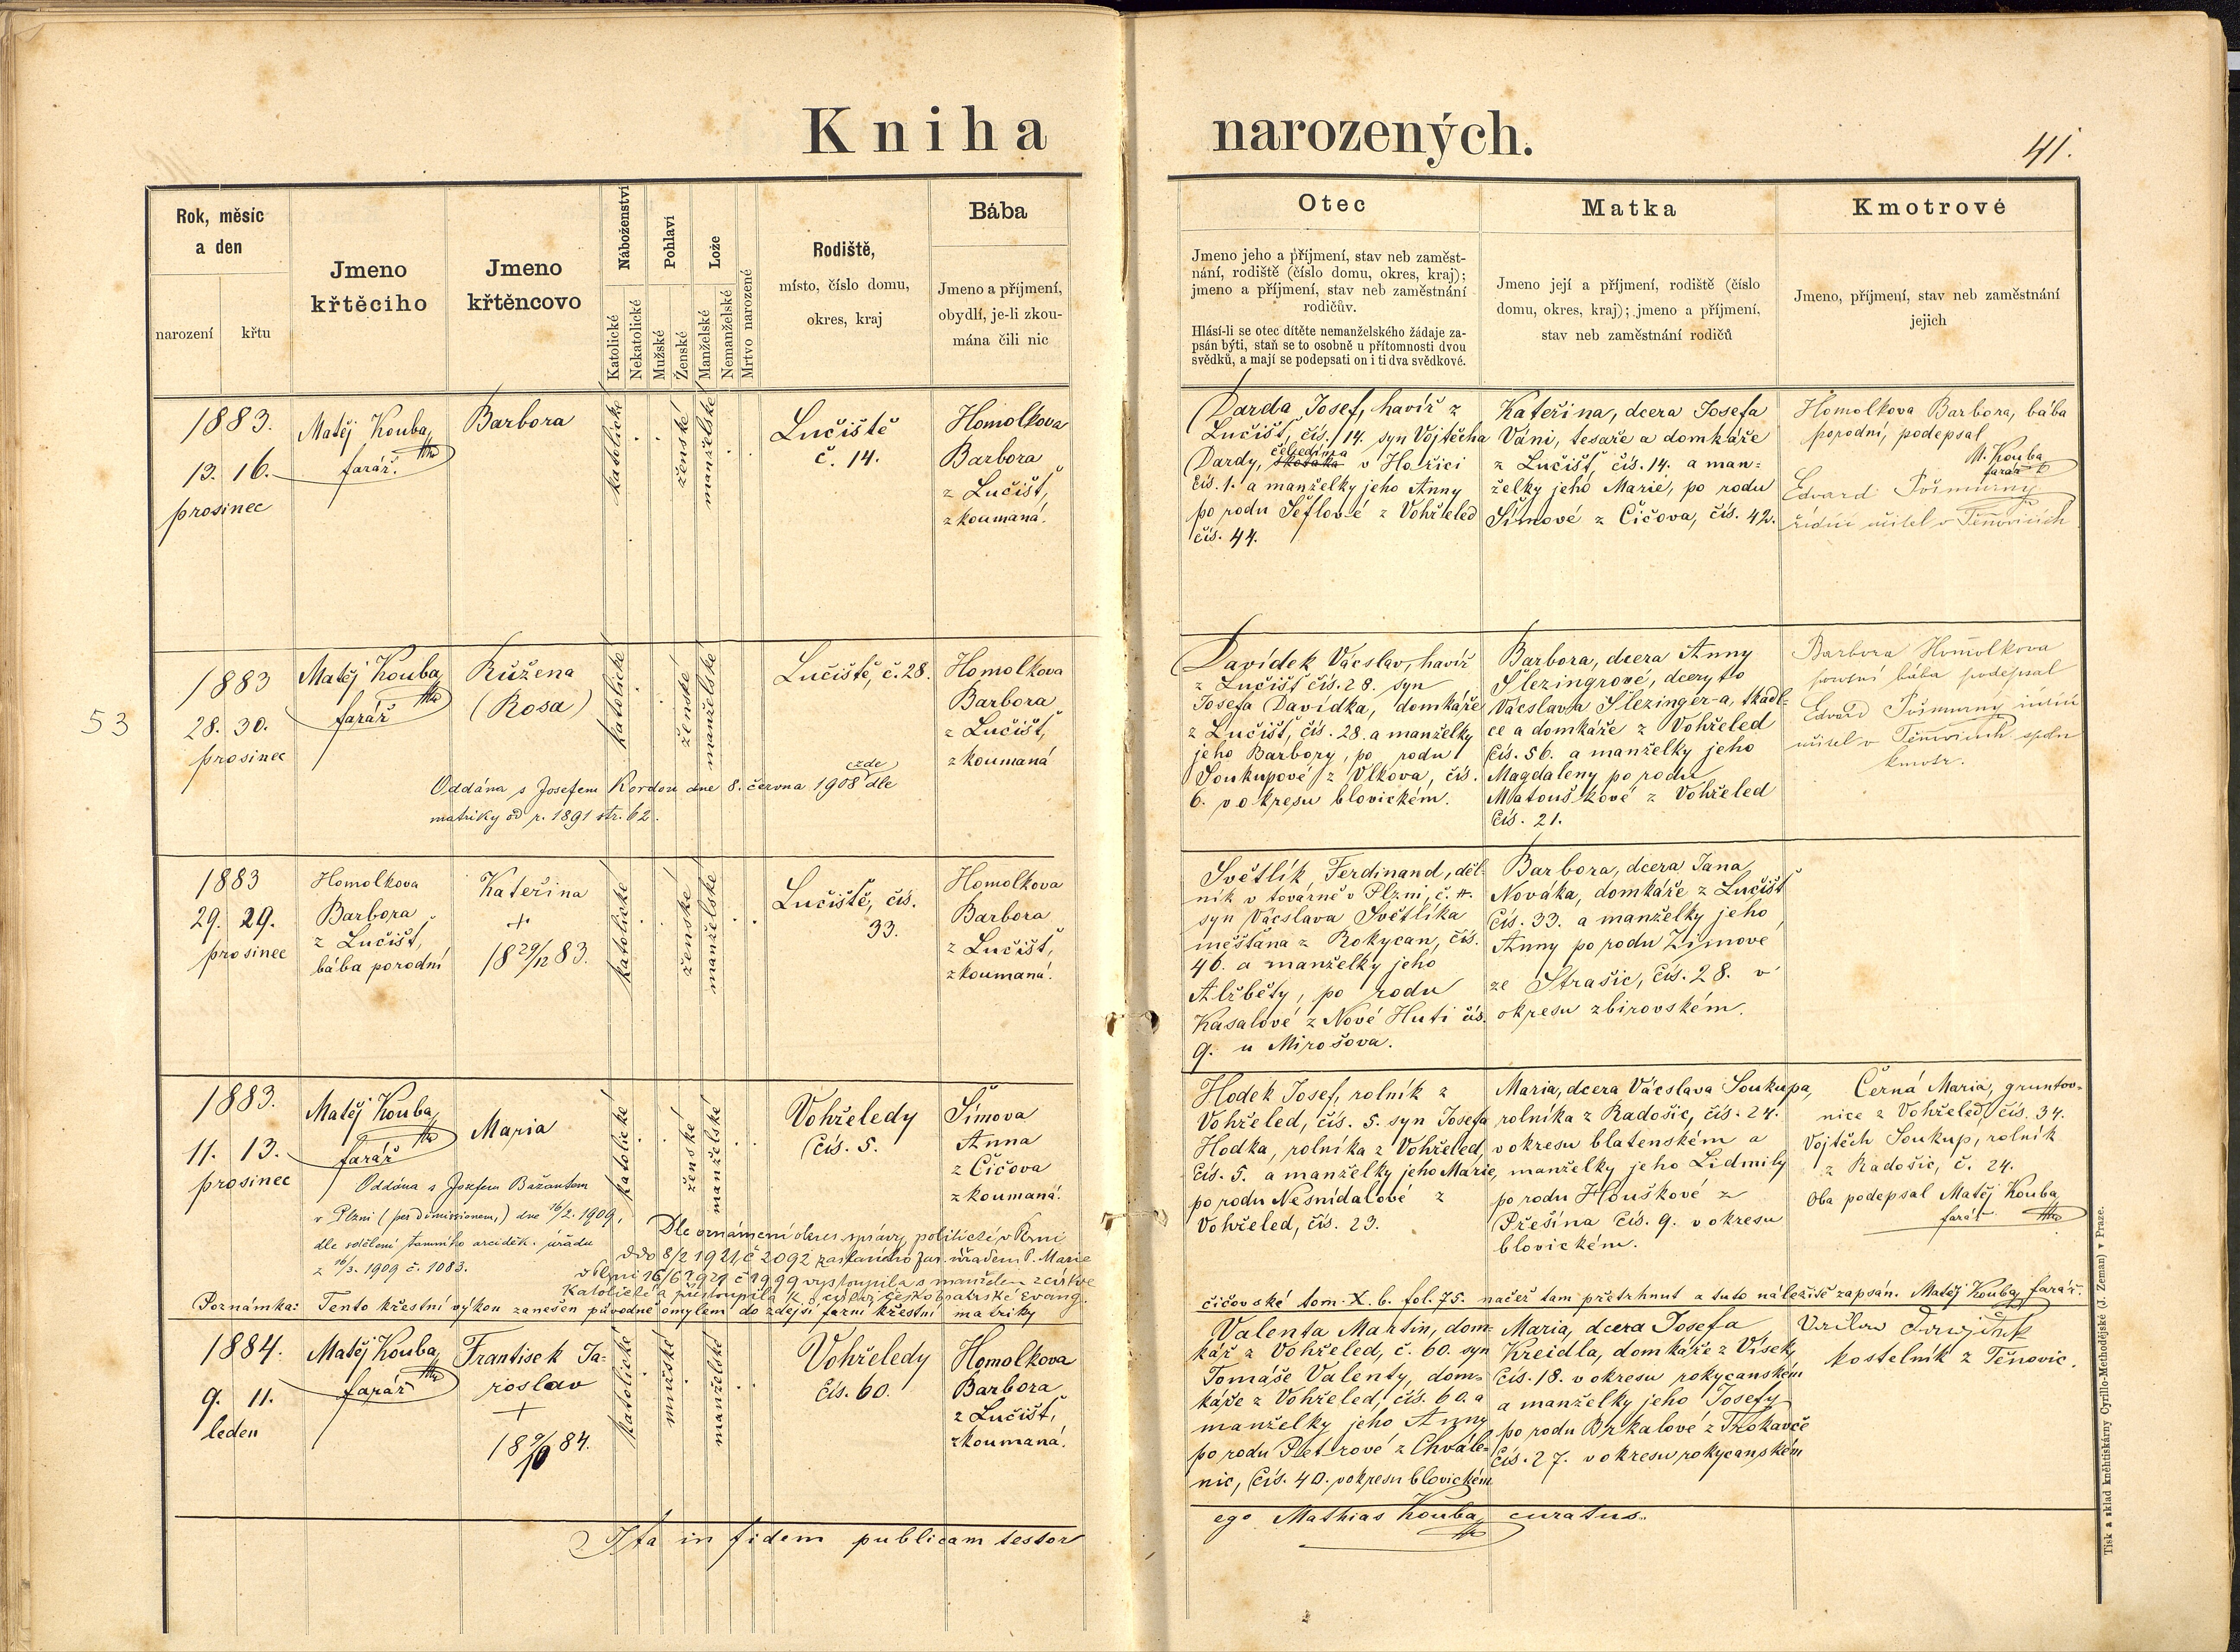 Kniha narozených.
41.
Rok, měsíc
a den
narození
křtu
Jmeno
křtěcího
Jmeno
křtěncovo
Náboženství
Katolické
Nekatolické
Pohlaví
Mužské
Ženské
Lože
Manželské
Nemanželské
Mrtvo narozené
Rodiště,
místo, číslo domu,
okres, kraj
Bába
Jmeno a příjmení,
obydlí, je-li zkou-
mána čili nic
Otec
Jmeno jeho a příjmení, stav neb zaměst-
nání, rodiště (číslo domu, okres, kraj);
jmeno a příjmení, stav neb zaměstnání
rodičův.
Hlásí-li se otec dítěte nemanželského žádaje za-
psán býti, staň se to osobně u přítomnosti dvou
svědků, a mají se podepsati on i ti dva svědkové.
Matka
Jmeno její a příjmení, rodiště (číslo
domu, okres, kraj); jmeno a příjmení,
stav neb zaměstnání rodičů
Kmotrové
Jmeno, příjmení, stav neb zaměstnání
jejich
1883.
13. 16.
prosinec
Matěj Kouba,
farář.
Barbora
katolické
ženské
manželské
Lučiště
č. 14.
Homolkova
Barbora
z Lučišť,
zkoumaná.
Darda Josef, havíř z
Lučišť, čís. 14. syn Vojtěcha
čeledína
Dardy, v Hořici
čís. 1. a manželky jeho Anny
po rodu Šeflové z Vohřeled
čís. 44.
Kateřina, dcera Josefa
Váni, tesaře a domkáře
z Lučišť, čís. 14. a man-
želky jeho Marie, po rodu
Šímové z Čičova, čís. 42.
Homolkova Barbora, bába
porodní, podepsal
M. Kouba
farář
Edvard Pošmurný
řídící učitel v Těnovicích
53
1883
28. 30.
prosinec
Matěj Kouba,
farář
Růžena
(Rosa)
katolické
ženské
manželské
Lučiště, č. 28.
Homolkova
Barbora
z Lučišť,
zkoumaná
Oddána s Josefem Kordou dne 8. června 1908 zde dle
matriky od r. 1891 str. 62.
Davídek Václav, havíř
z Lučišť čís. 28. syn
Josefa Davídka, domkáře
z Lučišť, čís. 28. a manželky
jeho Barbory, po rodu
Soukupové z Vlkova, čís.
6. v okresu blovickém.
Barbora, dcera Anny
Šlezingrové, dcery to
Václava Šlezinger-a, tkadl-
ce a domkáře z Vohřeled
čís. 56. a manželky jeho
Magdaleny po rodu
Matouškové z Vohřeled
čís. 21.
Barbora Homolkova
porodní bába podepsal
Edvard Pošmurný řídící
učitel v Těnovicích spolu
kmotr.
1883
29. 29.
prosinec
Homolkova
Barbora
z Lučišť,
bába porodní
Kateřina
+
18 29/12 83.
katolické
ženské
manželské
Lučiště, čís.
33.
Homolkova
Barbora
z Lučišť,
zkoumaná.
Světlík Ferdinand, děl-
ník v továrně v Plzni,
syn Václava Světlíka
měšťana z Rokycan, čís.
46. a manželky jeho
Alžběty, po rodu
Kasalové z Nové Huti čís.
9. u Mirošova.
Barbora, dcera Jana
Nováka, domkáře z Lučišť
čís. 33. a manželky jeho
Anny po rodu Zímové
ze Strašic, čís. 28. v
okresu zbirovském.
1883.
11. 13.
prosinec
Matěj Kouba,
farář
Maria
katolické
ženské
manželské
Vohřeledy
čís. 5.
Šímova
Anna
z Čičova
zkoumaná.
Oddána s Josefem Bažantem
v Plzni (per dimissionem,) dne 16/2. 1909,
dle sdělení tamního arciděk. úřadu
z 16/3. 1909 č. 1083.
Dle oznámení okres. správy politické v Plzni
ddo 8/2 1921, č 2092 zaslaného far. úřadem P. Marie
v Plzni 16/6 1921 č 1999 vystoupila s manželem z církve
katolické a přistoupila k církvi českobratrské evang.
Hodek Josef, rolník z
Vohřeled, čís. 5. syn Josefa
Hodka, rolníka z Vohřeled,
čís. 5. a manželky jeho Marie,
po rodu Nesnídalové z
Vohřeled, čís. 23.
Maria, dcera Václava Soukupa,
rolníka z Radošic, čís. 24.
v okresu blatenském a
manželky jeho Lidmily
po rodu Houškové z
Přešína čís. 9. v okresu
blovickém.
Černá Maria, gruntov-
nice z Vohřeled, čís. 34.
Vojtěch Soukup, rolník
z Radošic, č. 24.
Oba podepsal Matěj Kouba
farář
Poznámka: Tento křestní výkon zanešen původně omylem do zdejší farní křestní matriky
čičovské tom. X. b. fol. 75. načež tam přetrhnut a tuto náležitě zapsán. Matěj Kouba, farář.
1884.
9. 11.
leden
Matěj Kouba,
farář
František Ja-
roslav
+
katolické
mužské
manželské
Vohřeledy
čís. 60.
Homolkova
Barbora
z Lučišť,
zkoumaná.
Valenta Martin, dom-
kář z Vohřeled, č. 60. syn
Tomáše Valenty, dom-
káře z Vohřeled, čís. 60. a
manželky jeho Anny
po rodu Petrové z Chvále-
nic, čís. 40. v okresu blovickém
Maria, dcera Josefa
Kreidla, domkáře z Vísek,
čís. 18. v okresu rokycanském
a manželky jeho Josefy
po rodu Brkalové z Trokavče
čís. 27. v okresu rokycanském
kostelník z Těnovic.
Ita in fidem publicam testor
ego Mathias Kouba, curatus.
Tisk a sklad kněhtiskárny Cyrillo-Methodějské (J. Zeman) v Praze.